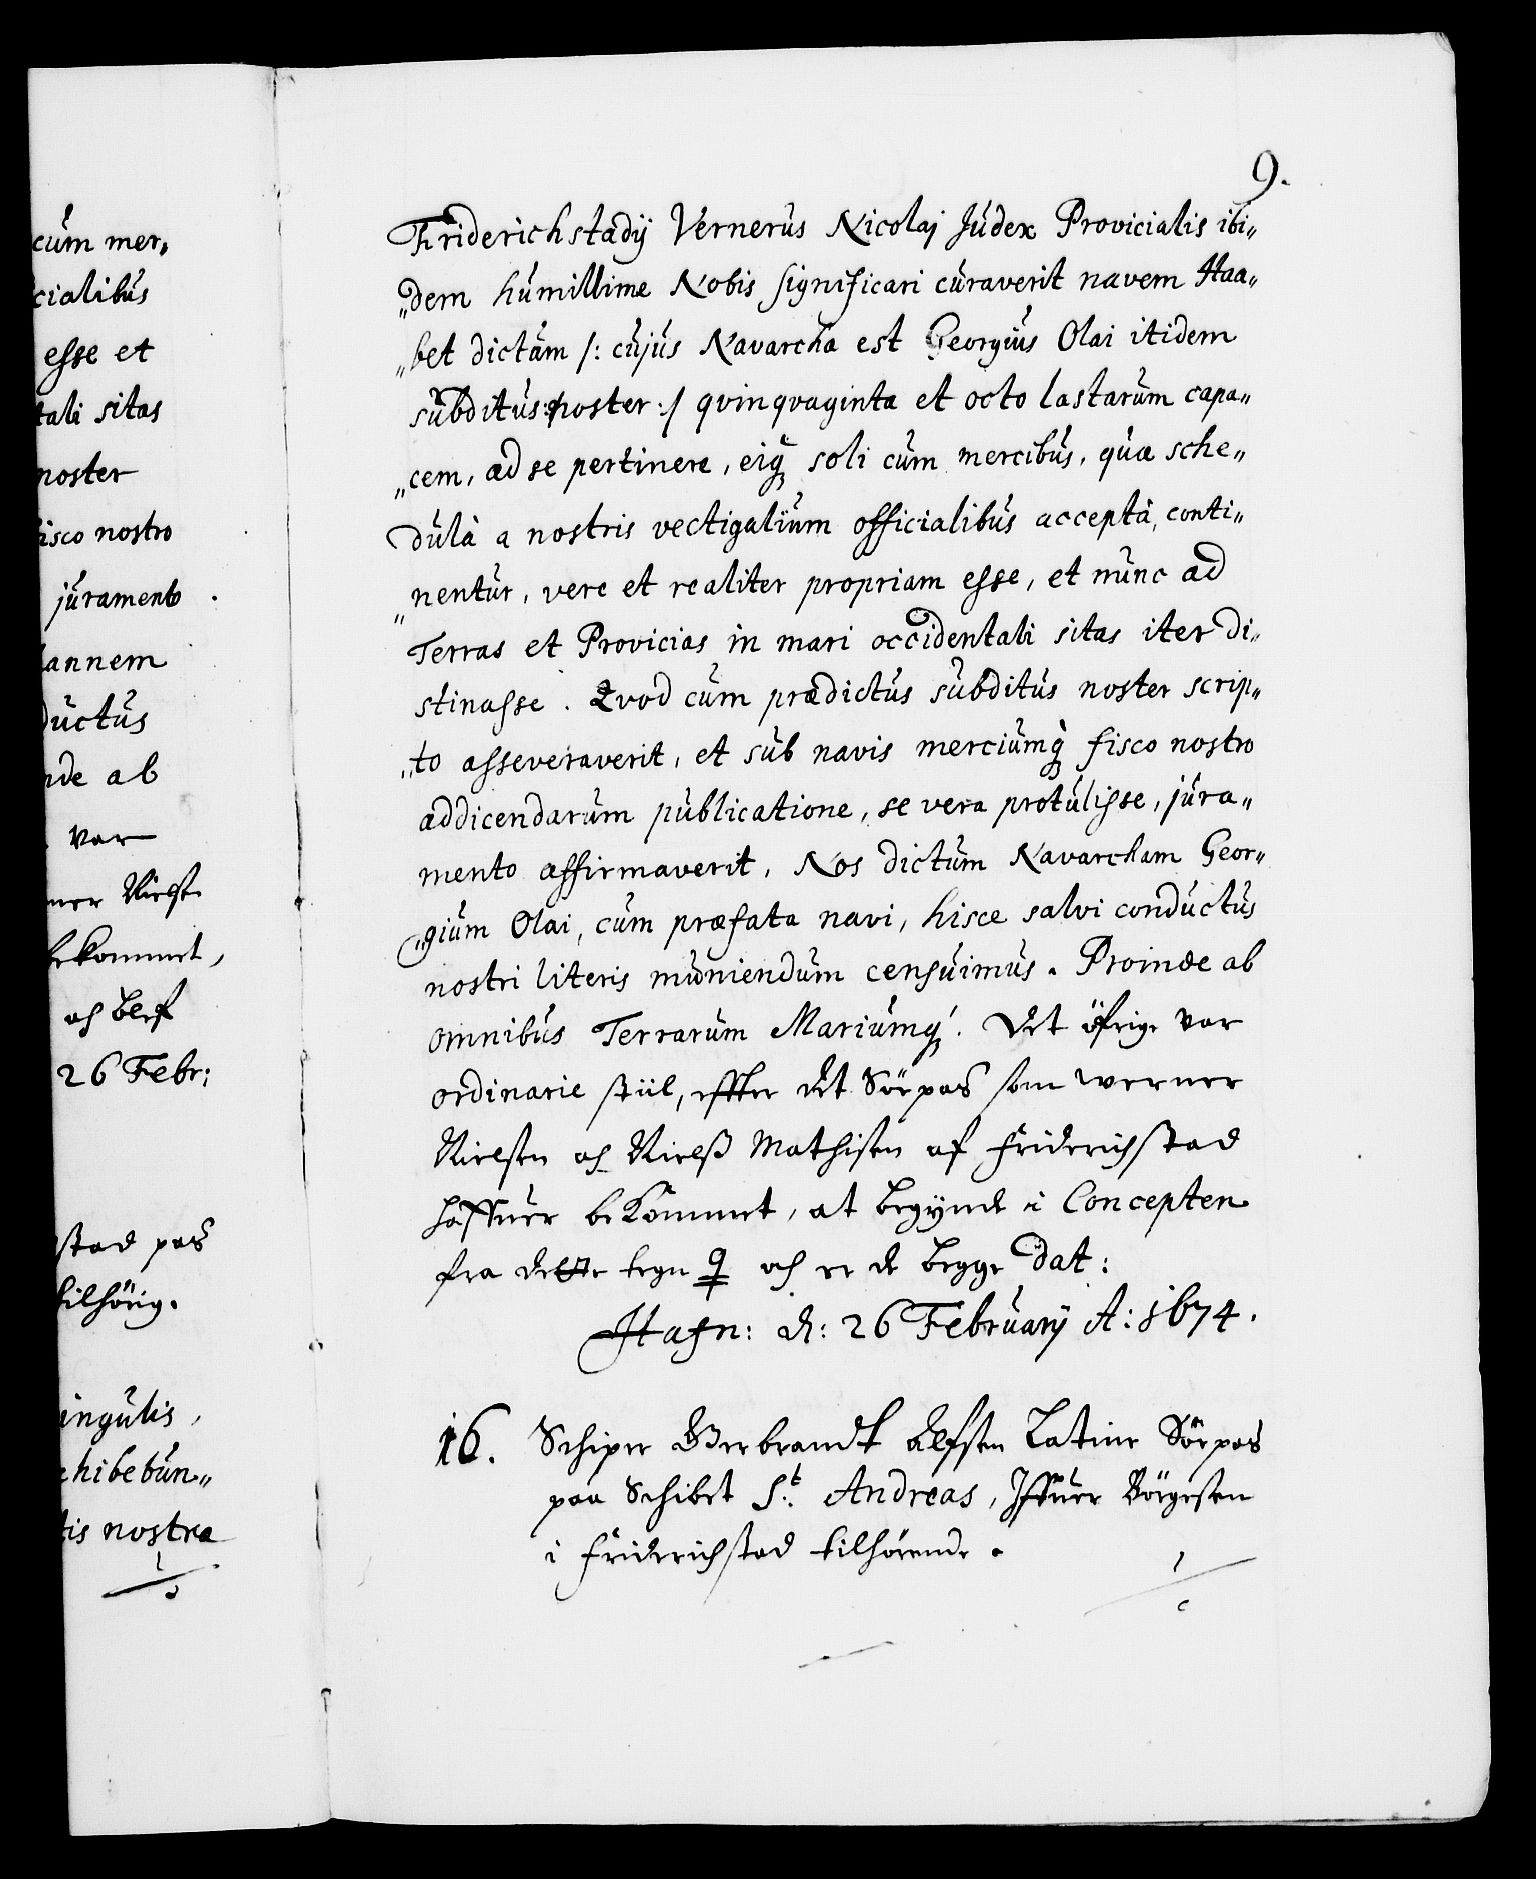 cum mer„
cialibus
esse et
tali sitas
noster
isco nostro
juramento
annem
ductus
nde ab
var
ner Nielsen
bekommet,
och blef
26 Febr:
stad pas
tilhörig.
ingulis,
hibebun„
tis nostræ
9.
Friderichstadij Vernerus Nicolaj Judex Provicialis ibi„
„dem humillime Nobis significari curaverit navem Haa„
„bet dictam /: cujus Navarcha est Georgius Olai itidem
subditus noster :/ qvinqvaginta et octo lastarum capa„
„cem, ad se pertinere, eiq; soli cum mercibus, quæ sche„
dulà a nostris vectigalium officialibus acceptà, conti„
„nentur, vere et realiter propriam esse, et nunc ad
Terras et Provicias in mari occidentali sitas iter di„
stinasse. Qvod cum prædictus subditus noster scrip„
„to asseveraverit, et sub navis merciumq; fisco nostro
addicendarum publicatione, se vera protulisse, jura„
mento affirmaverit, Nos dictum Navarcham Geor„
„gium Olai, cum præfata navi, hisce salvi conductus
nostri literis muniendum censuimus. Proinde ab
omnibus Terrarum Mariumq;. Det öfrige var
ordinarie stiil, effter det Söepas som werner
Nielsen och Nielß Mathisen af Friderichstad
haffuer bekommet, at begynde i Concepten
fra dette tegn och er de begge dat:
Hafn: d: 26 Februarij A: 1674.
16. Schiper Gerbrandt Elefsen Latine Söepas
paa Schibet St. Andreas, Iffuer Börgesen
i Friderichstad tilhörende.